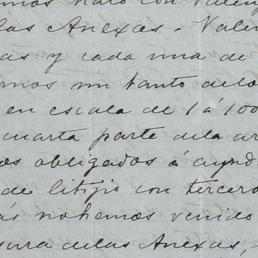 mos hará con Valen
las Anexas - Valen
as y cada una de
mos un tanto delo
en escala de 1 a 100
cuarta parte dela ar
os obligados á ayud
de litijio con tercero
ás nohemos venido
sura delas Anexas,